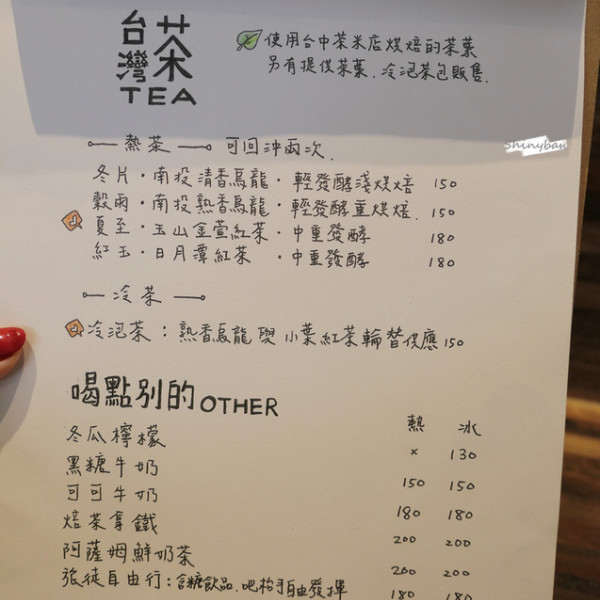 台灣茶
TEA
使用台中茶米店烘焙的茶葉
另有提供茶葉.冷泡茶包販售.
Shinyban
熱茶 可回沖兩次.
冬片·南投清香烏龍·輕發酵淺烘焙 150
穀雨·南投熟香烏龍·輕發酵重烘焙. 150
夏至·玉山金萱紅茶·中重發酵 180
紅玉·日月潭紅茶·中重發酵 180
冷茶
冷泡茶:熟香烏龍與小葉紅茶輪替供應 150
喝點別的 OTHER
熱 冰
冬瓜檸檬 × 130
黑糖牛奶 150 150
可可牛奶 180 180
焙茶拿鐵 200 200
阿薩姆鮮奶茶 200 200
旅徒自由行:含糖飲品.吧枱手自由發揮 180 180